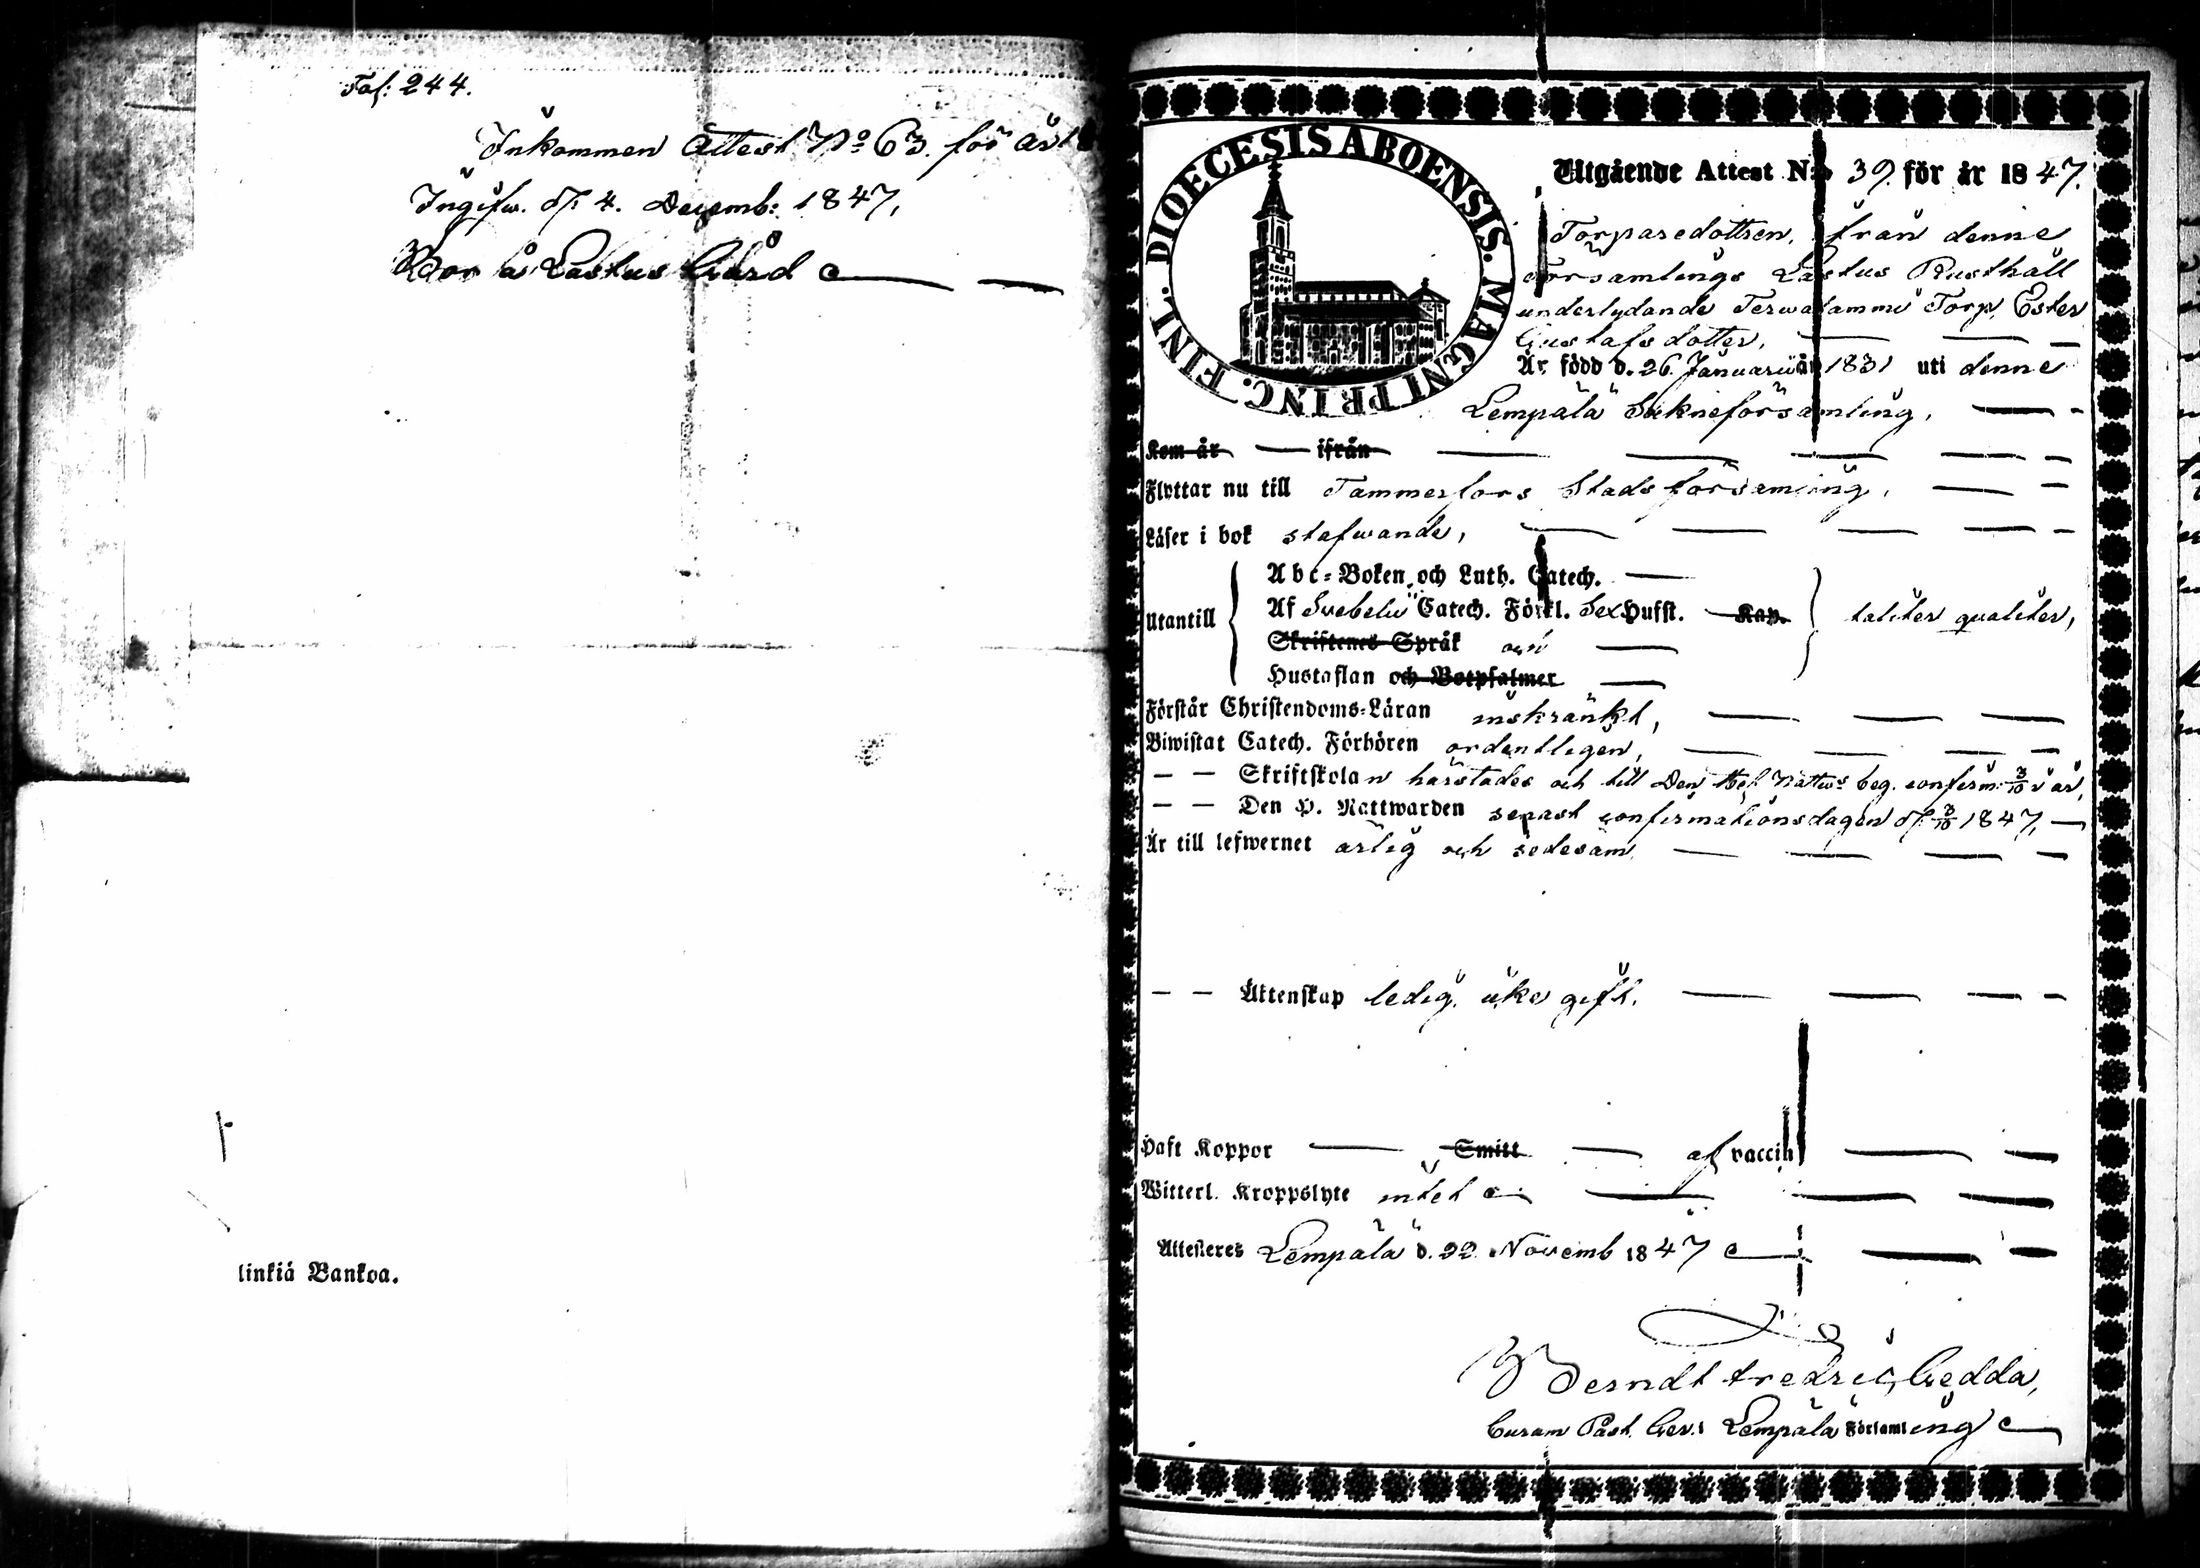 Fol: 244.
Inkommen Attest No 63. för år 18
Ingifw. d. 4. Decemb: 1847,
Bor å Lastus Gård
linkiä Bankoa.
DIOECESIS ABOENSIS. MAGNI PRINC. FINL.
Utgående Attest N:o 39. för år 1847.
Torparedottren, från denne
Församlings Lastus Rusthåll
underlydande Terwalammi Torp, Ester
Gustafsdotter,
Är född d. 26 Januarii år 1831 uti denne
Lempälä Sokneförsamling,
Kom år — ifrån
Flyttar nu till Tammerfors Stads församling,
Läser i bok stafwande,
Utantill
Abc-Boken och Luth. Catech.
Af Svebelii Catech. Förkl. Sex Hufst. Kap.
Skriftenes Språk och
Hustaflan och Botpsalmer
taliter qualiter,
Förstår Christendoms-Läran inskränkt,
Biwistat Catech. Förhören ordentligen,
— — Skriftskolan härstädes och till Den Hel. Nattw:s beg. confirm: 3/10 i år,
— — Den H. Nattwarden senast confirmationsdagen d. 3/10 1847,
Är till lefwernet ärlig och sedesam
— — Äktenskap ledig, icke gift.
Haft Koppor — Smitt — af vaccin
Witterl. Kroppslyte intet
Attesteres Lempälä d. 22 Novemb 1847
Berndt Fredric Gedda,
Curam Past. Ger: i Lempälä Församling